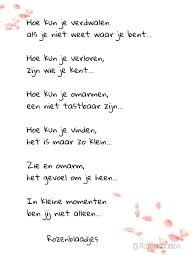 Hoe kun je verdwalen
als je niet weet waar je bent...
Hoe kun je verloren,
zijn wie je kent...
Hoe kun je omarmen,
een niet tastbaar zijn...
Hoe kun je vinden,
het is maar zo klein...
Zie en omarm,
het gevoel om je heen...
In kleine momenten
ben jij niet alleen...
Rozenblaadjes
© Rozenblaadjes